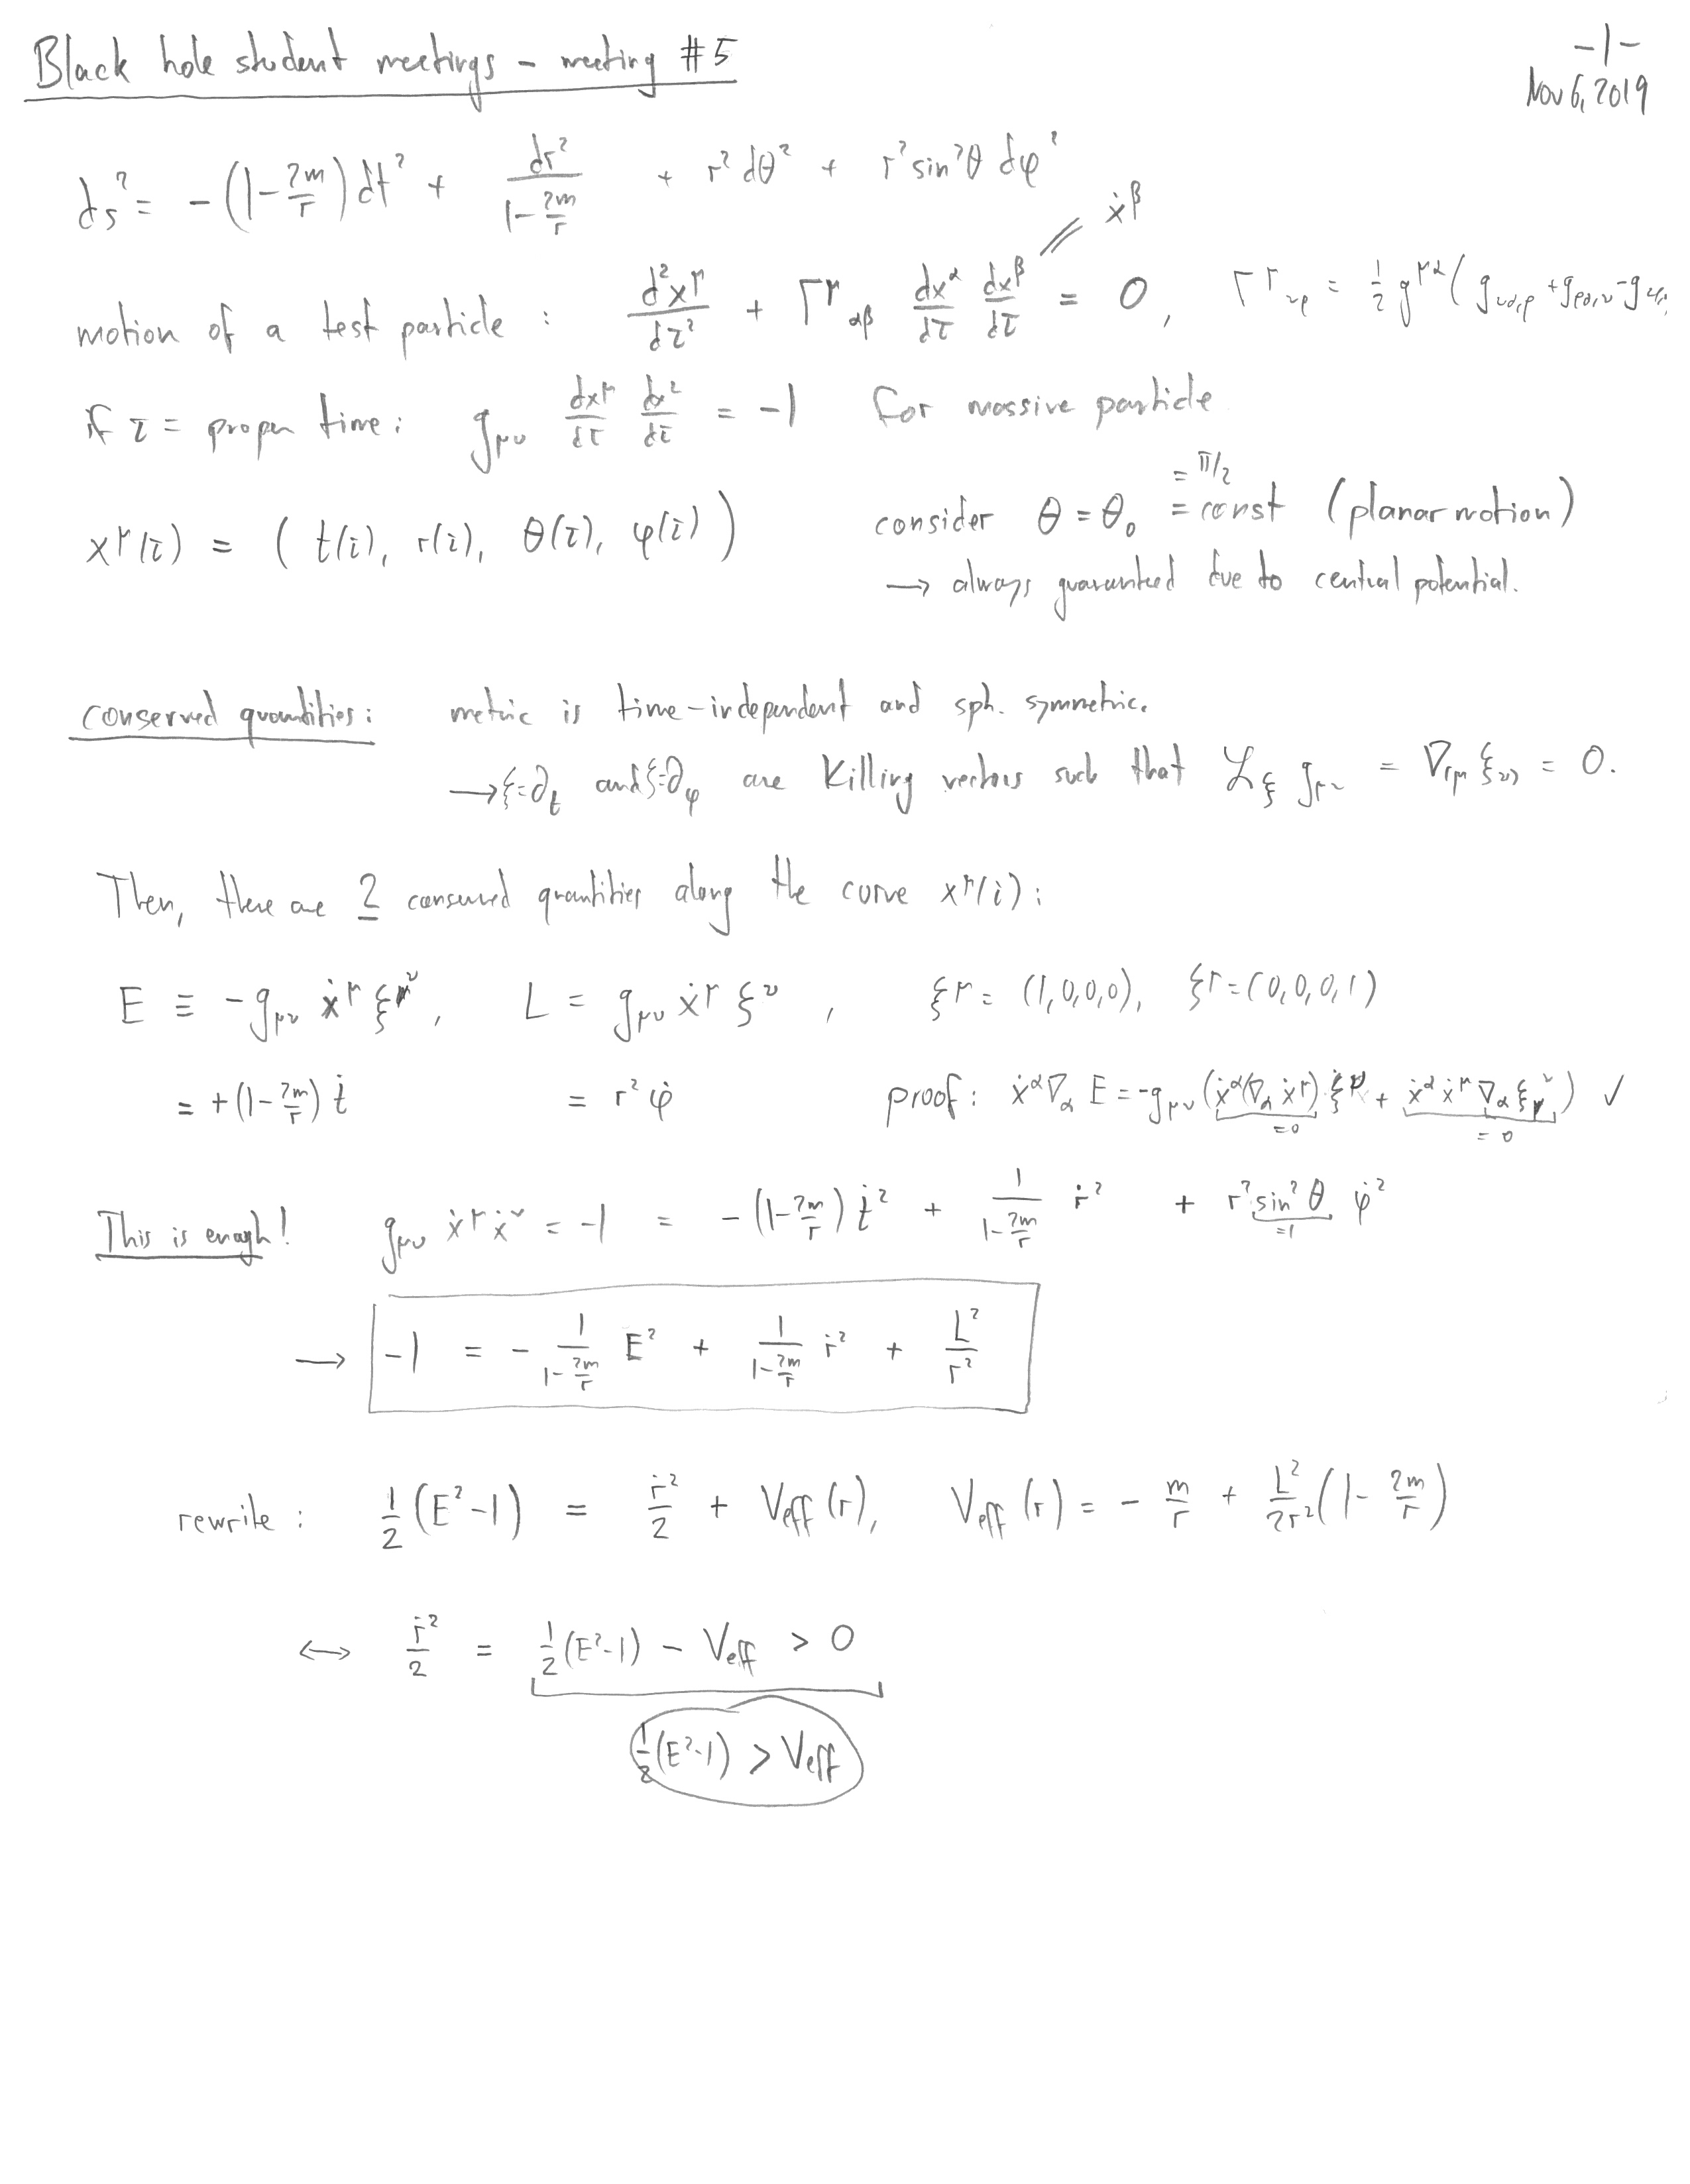 Black hole student meetings - meeting #5
-1-
Nov 6, 2019
ds² = -(1-2m/r) dt² + dr²/(1-2m/r) + r² dθ² + r² sin²θ dφ²
ẋ^β
motion of a test particle : d²x^μ/dτ² + Γ^μ_αβ dx^α/dτ dx^β/dτ = 0,
if τ = proper time: g_μν dx^μ/dτ dx^ν/dτ = -1 for massive particle
x^μ(τ) = ( t(τ), r(τ), θ(τ), φ(τ) ) consider θ = θ₀ = const = π/2 (planar motion)
→ always guaranteed due to central potential.
conserved quantities: metric is time-independent and sph. symmetric.
→ ξ=∂_t and ξ=∂_φ are Killing vectors such that ℒ_ξ g_μν = ∇_(μ ξ_ν) = 0.
Then, there are 2 conserved quantities along the curve x^μ(τ):
E ≡ -g_μν ẋ^μ ξ^ν, L = g_μν ẋ^μ ξ^ν, ξ^μ = (1,0,0,0), ξ^μ = (0,0,0,1)
= +(1-2m/r) ṫ = r² φ̇ proof: ẋ^α ∇_α E = -g_μν (ẋ^α(∇_α ẋ^μ) ξ^ν + ẋ^α ẋ^μ ∇_α ξ^ν) ✓
=0 =0
This is enough! g_μν ẋ^μ ẋ^ν = -1 = -(1-2m/r) ṫ² + 1/(1-2m/r) ṙ² + r² sin²θ φ̇²
=1
→ -1 = - 1/(1-2m/r) E² + 1/(1-2m/r) ṙ² + L²/r²
rewrite : 1/2 (E²-1) = ṙ²/2 + V_eff (r), V_eff (r) = - m/r + L²/2r² (1- 2m/r)
↔ ṙ²/2 = 1/2 (E²-1) - V_eff > 0
1/2 (E²-1) > V_eff